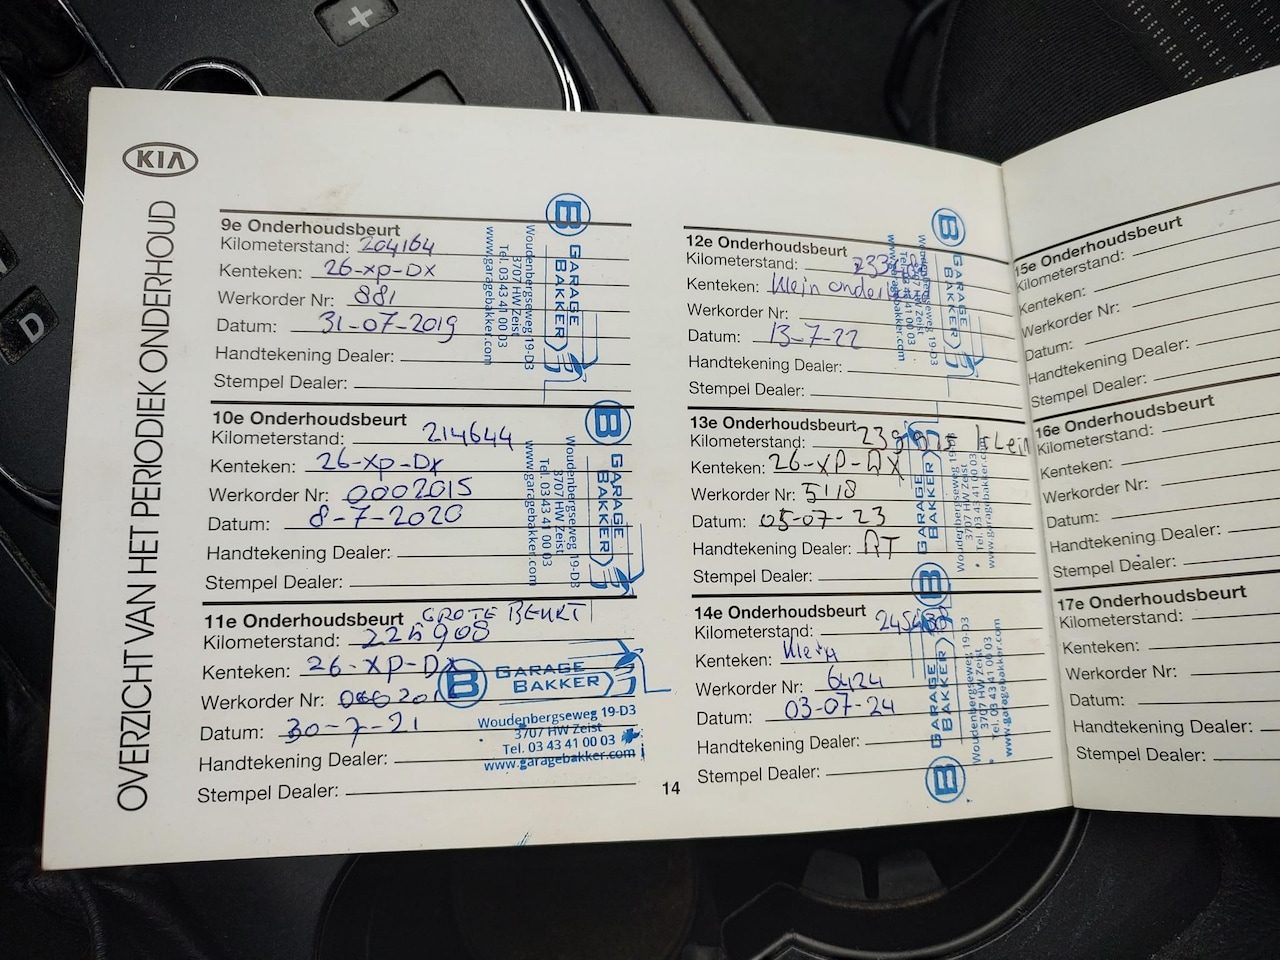 KIA
OVERZICHT VAN HET PERIODIEK ONDERHOUD
9e Onderhoudsbeurt
Kilometerstand: 204164
Kenteken: 26-XP-DX
Werkorder Nr: 881
Datum: 31-07-2019
Handtekening Dealer:
Stempel Dealer:
B GARAGE BAKKER
Woudenbergseweg 19-D3
3707 HW Zeist
Tel. 03 43 41 00 03
www.garagebakker.com
10e Onderhoudsbeurt
Kilometerstand: 214644
Kenteken: 26-XP-DX
Werkorder Nr: 0002015
Datum: 8-7-2020
Handtekening Dealer:
Stempel Dealer:
B GARAGE BAKKER
Woudenbergseweg 19-D3
3707 HW Zeist
Tel. 03 43 41 00 03
www.garagebakker.com
11e Onderhoudsbeurt GROTE BEURT
Kilometerstand:
Kenteken: 26-XP-DX
Werkorder Nr:
Datum: 30-7-21
Handtekening Dealer:
Stempel Dealer:
B GARAGE BAKKER
Woudenbergseweg 19-D3
3707 HW Zeist
Tel. 03 43 41 00 03
www.garagebakker.com
12e Onderhoudsbeurt
Kilometerstand:
Kenteken: Klein
Werkorder Nr:
Datum: 13-7-22
Handtekening Dealer:
Stempel Dealer:
B GARAGE BAKKER
Woudenbergseweg 19-D3
3707 HW Zeist
Tel. 03 43 41 00 03
www.garagebakker.com
13e Onderhoudsbeurt
Kilometerstand: klein
Kenteken: 26-XP-DX
Werkorder Nr: 5118
Datum: 05-07-23
Handtekening Dealer: RT
Stempel Dealer:
B GARAGE BAKKER
Woudenbergseweg 19-D3
3707 HW Zeist
Tel. 03 43 41 00 03
www.garagebakker.com
14e Onderhoudsbeurt
Kilometerstand:
Kenteken: Klein
Werkorder Nr: 6424
Datum: 03-07-24
Handtekening Dealer:
Stempel Dealer:
B GARAGE BAKKER
Woudenbergseweg 19-D3
3707 HW Zeist
Tel. 03 43 41 00 03
www.garagebakker.com
14
15e Onderhoudsbeurt
Kilometerstand:
Kenteken:
Werkorder Nr:
Datum:
Handtekening Dealer:
Stempel Dealer:
16e Onderhoudsbeurt
Kilometerstand:
Kenteken:
Werkorder Nr:
Datum:
Handtekening Dealer:
Stempel Dealer:
17e Onderhoudsbeurt
Kilometerstand:
Kenteken:
Werkorder Nr:
Datum:
Handtekening Dealer:
Stempel Dealer:
+
D